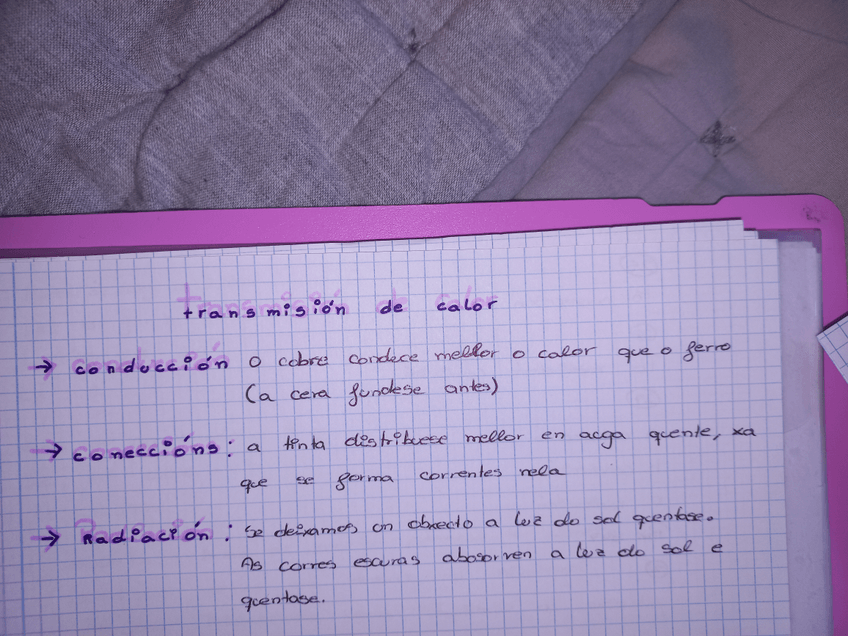 transmisión de calor
→ conducción o cobre condece mellor o calor que o ferro
(a cera fundese antes)
→ coneccións: a tinta distribuese mellor en acga quente, xa
que se forma correntes nela
→ Radiación: se deixamos un obxecto a luz do sol quentase.
As corres escuras abosorven a luz do sol e
quentase.